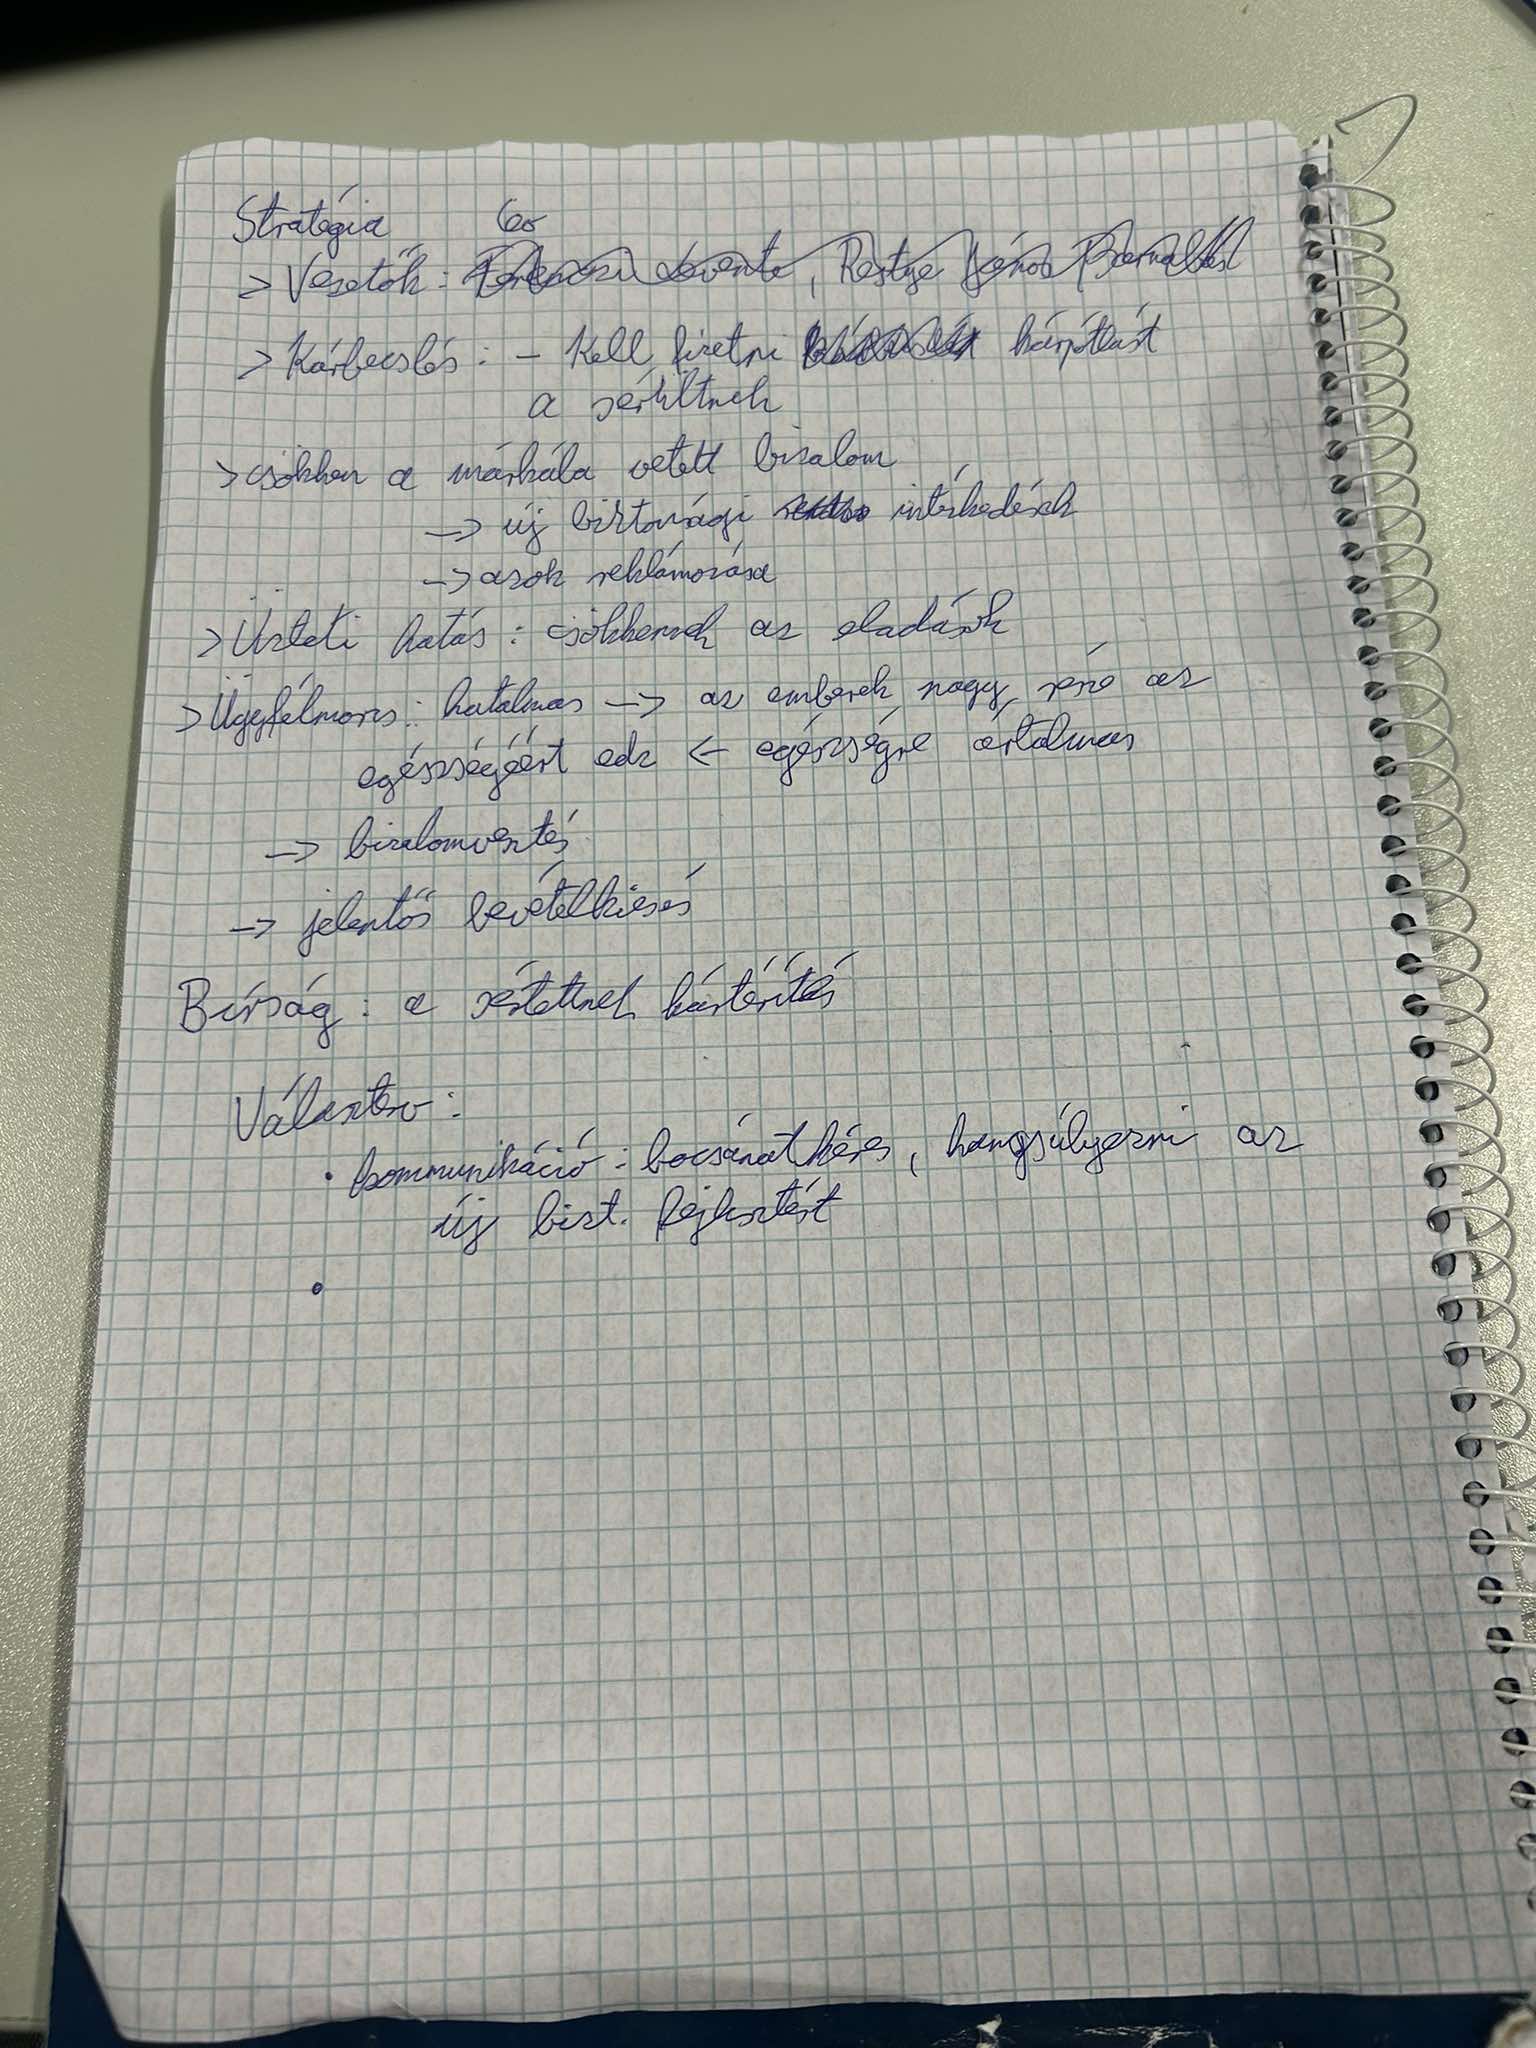 Stratégia
> Vezetők:
> Kárbecslés: - Kell fizetni kárpótlást
a sérültnek
> csökken a márkála vetett bizalom
-> új biztonsági intézkedések
-> azok reklámozása
> Üzleti hatás: csökkennek az eladások
> Ügyfélmors: hatalmas -> az emberek nagy része az
egészségéért edz <- egészségre ártalmas
-> bizalomvesztés
-> jelentős bevételkiesés
Bírság: a sértettnek kártérítés
Választerv:
• kommunikáció: bocsánatkérés, hangsúlyozni az
új bizt. fejlesztést
•